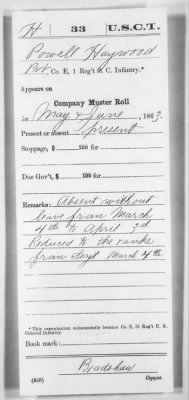 H | 33 | U.S.C.T.
Powell Haywood
Pvt, Co. E, 1 Reg't S. C. Infantry.*
Appears on
Company Muster Roll
for May & June, 1863.
Present or absent Present
Stoppage, $ 100 for
Due Gov't, $ 100 for
Remarks: Absent without
leave from March
4th to April 3d
Reduced to the ranks
from Sergt March 4th
* This organization subsequently became Co. E, 33 Reg't U. S.
Colored Infantry.
Book mark:
Bradshaw
(858) Copyist.